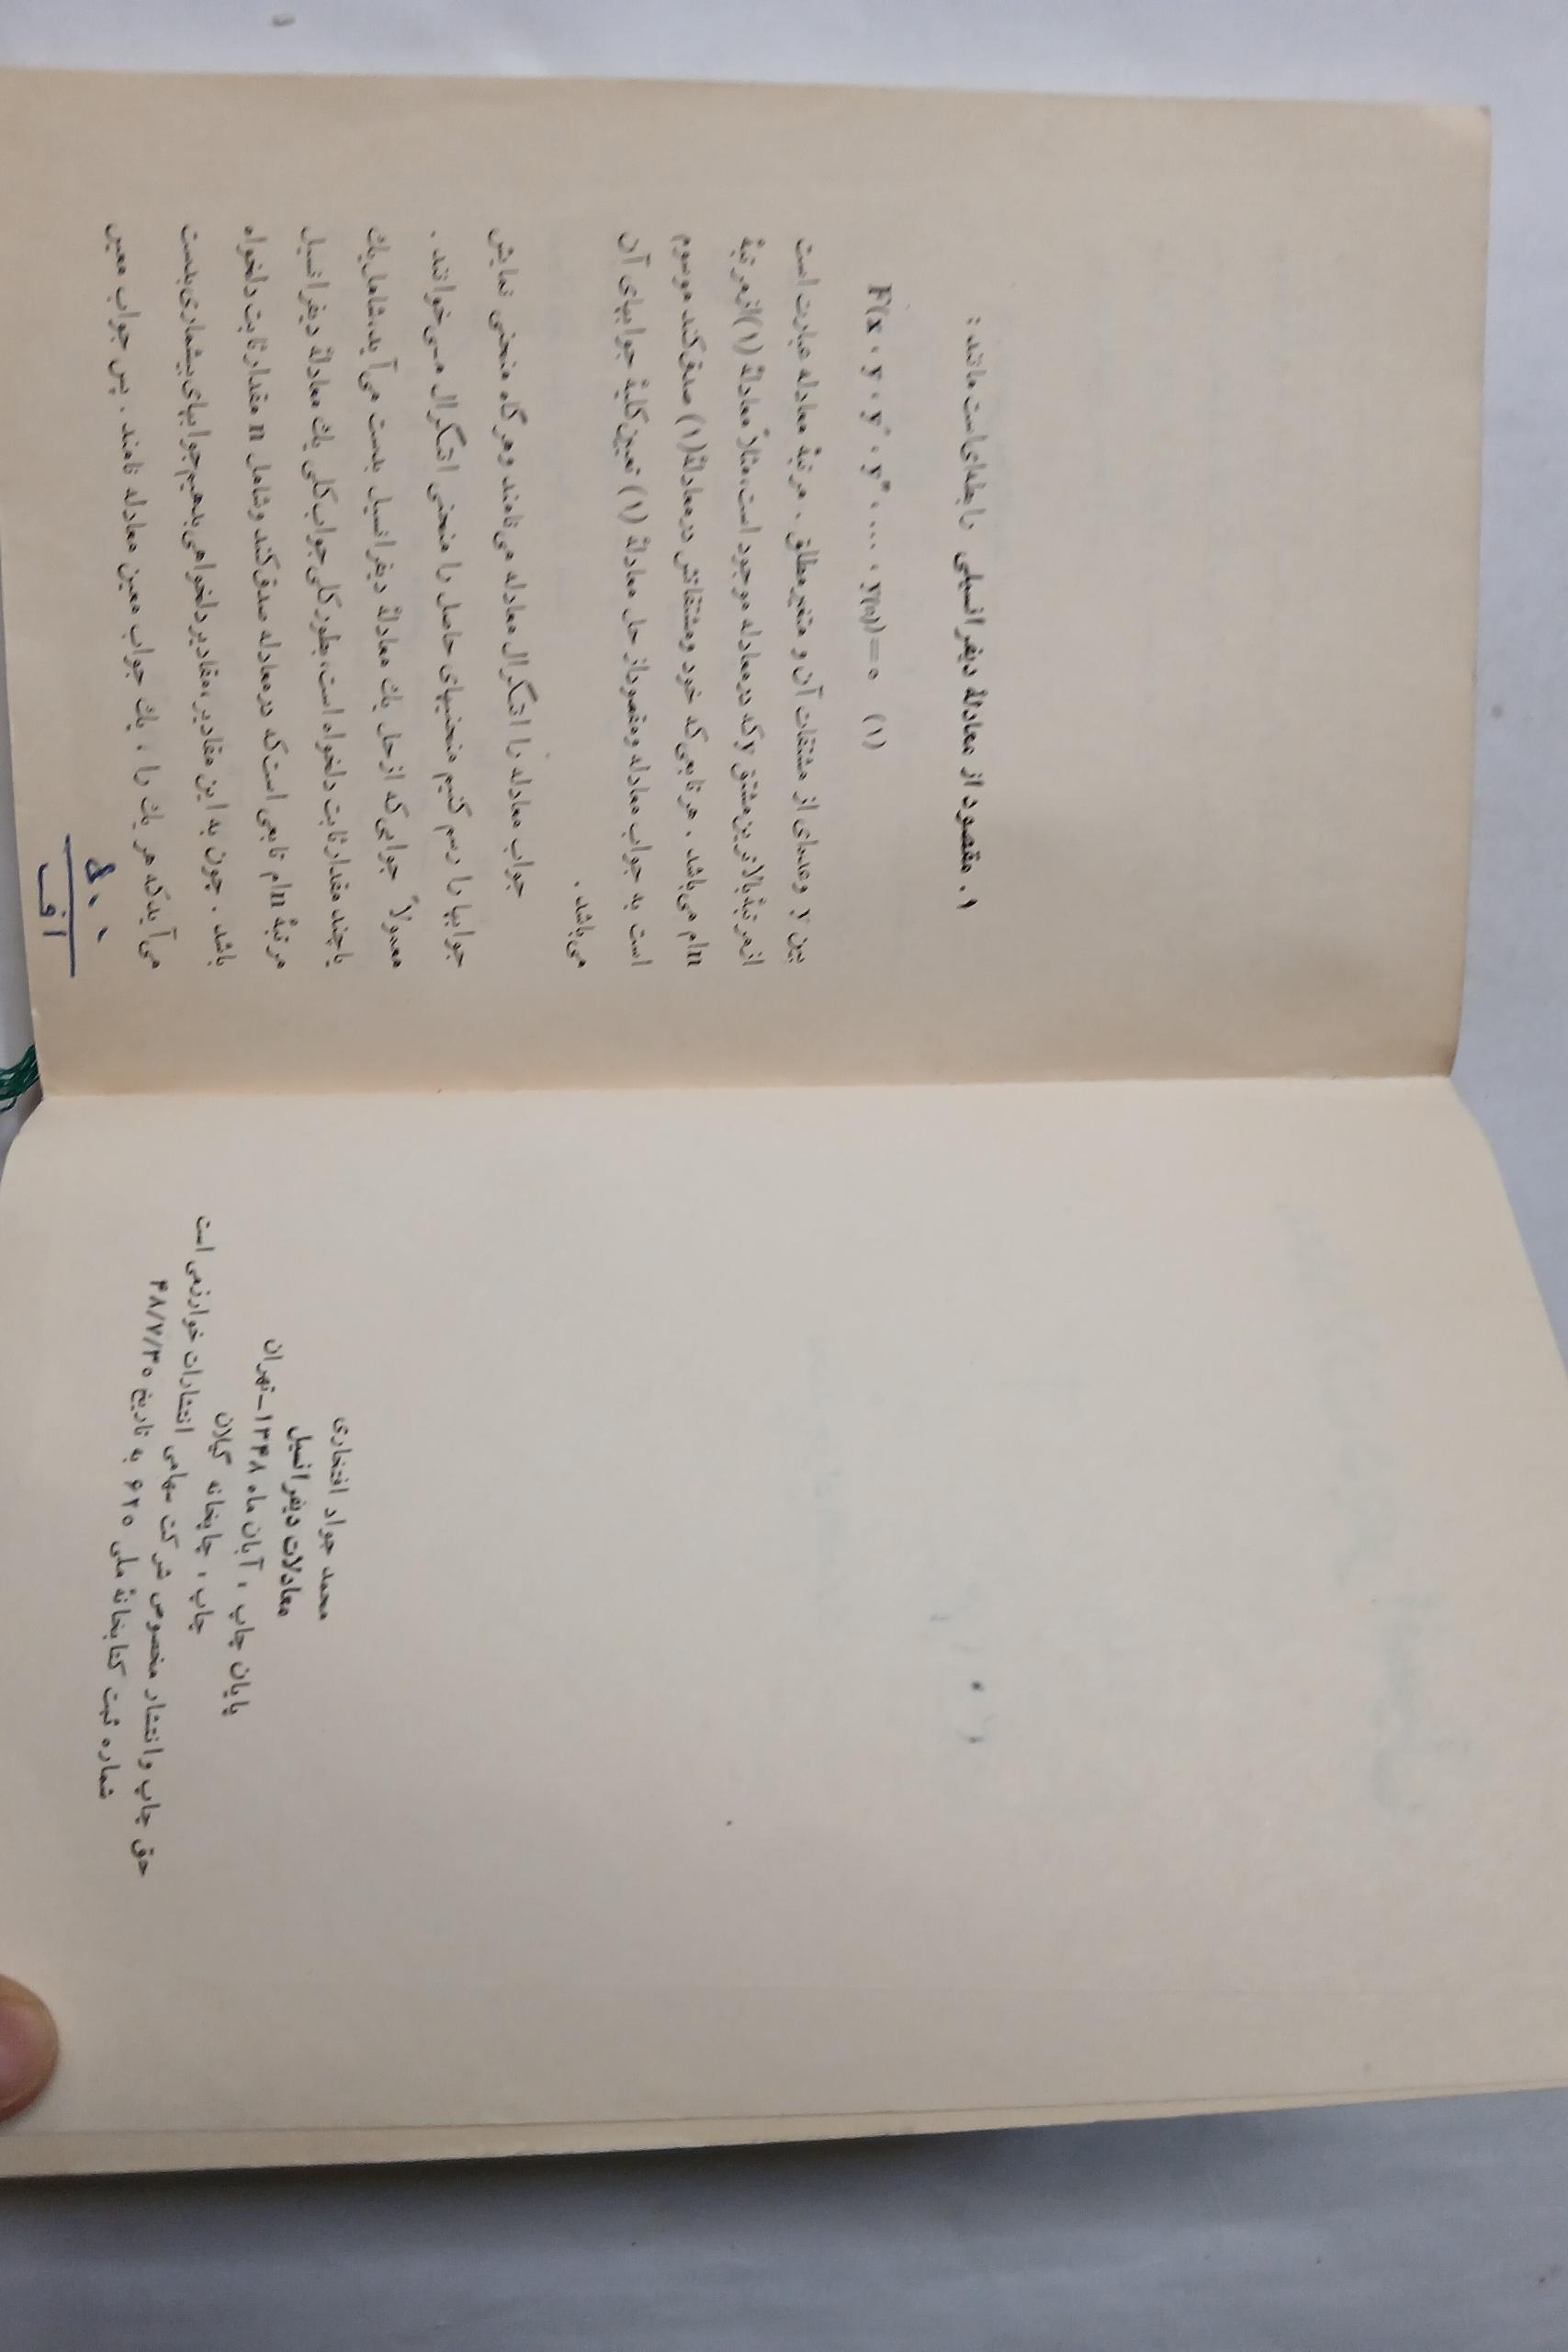 محمد جواد افتخاری
معادلات دیفرانسیل
پایان چاپ ، آبان ماه ۱۳۴۸-تهران
چاپ ، چاپخانه گیلان
حق چاپ و انتشار مخصوص شرکت سهامی انتشارات خوارزمی است
شماره ثبت کتابخانهٔ ملی ۶۲۰ به تاریخ ۴۸/۷/۳۰
۱. مقصود از معادلهٔ دیفرانسیلی رابطه‌ای است مانند :
F(x ، y ، y′ ، y″ ، ... ، y(n))=۰ (۱)
بین y و عده‌ای از مشتقات آن و متغیر مطلق . مرتبهٔ معادله عبارت است
از مرتبهٔ بالاترین مشتق y که در معادله موجود است، مثلاً معادلهٔ (۱) از مرتبهٔ
nام می‌باشد . هر تابعی که خود و مشتقاتش در معادلهٔ (۱) صدق کند موسوم
است به جواب معادله و مقصود از حل معادلهٔ (۱) تعیین کلیهٔ جوابهای آن
می‌باشد .
جواب معادله را انتگرال معادله می‌نامند و هر گاه منحنی نمایش
جوابها را رسم کنیم منحنیهای حاصل را منحنی انتگرال می‌خوانند .
معمولاً جوابی که از حل یك معادلهٔ دیفرانسیل بدست می‌آید، شامل یك
یا چند مقدار ثابت دلخواه است، بطور کلی جواب کلی یك معادلهٔ دیفرانسیل
مرتبهٔ nام تابعی است که در معادله صدق کند و شامل n مقدار ثابت دلخواه
باشد . چون به این مقادیر، مقادیر دلخواهی بدهیم جوابهای بیشماری بدست
می‌آید که هر یك را ، یك جواب معین معادله نامند . پس جواب معین